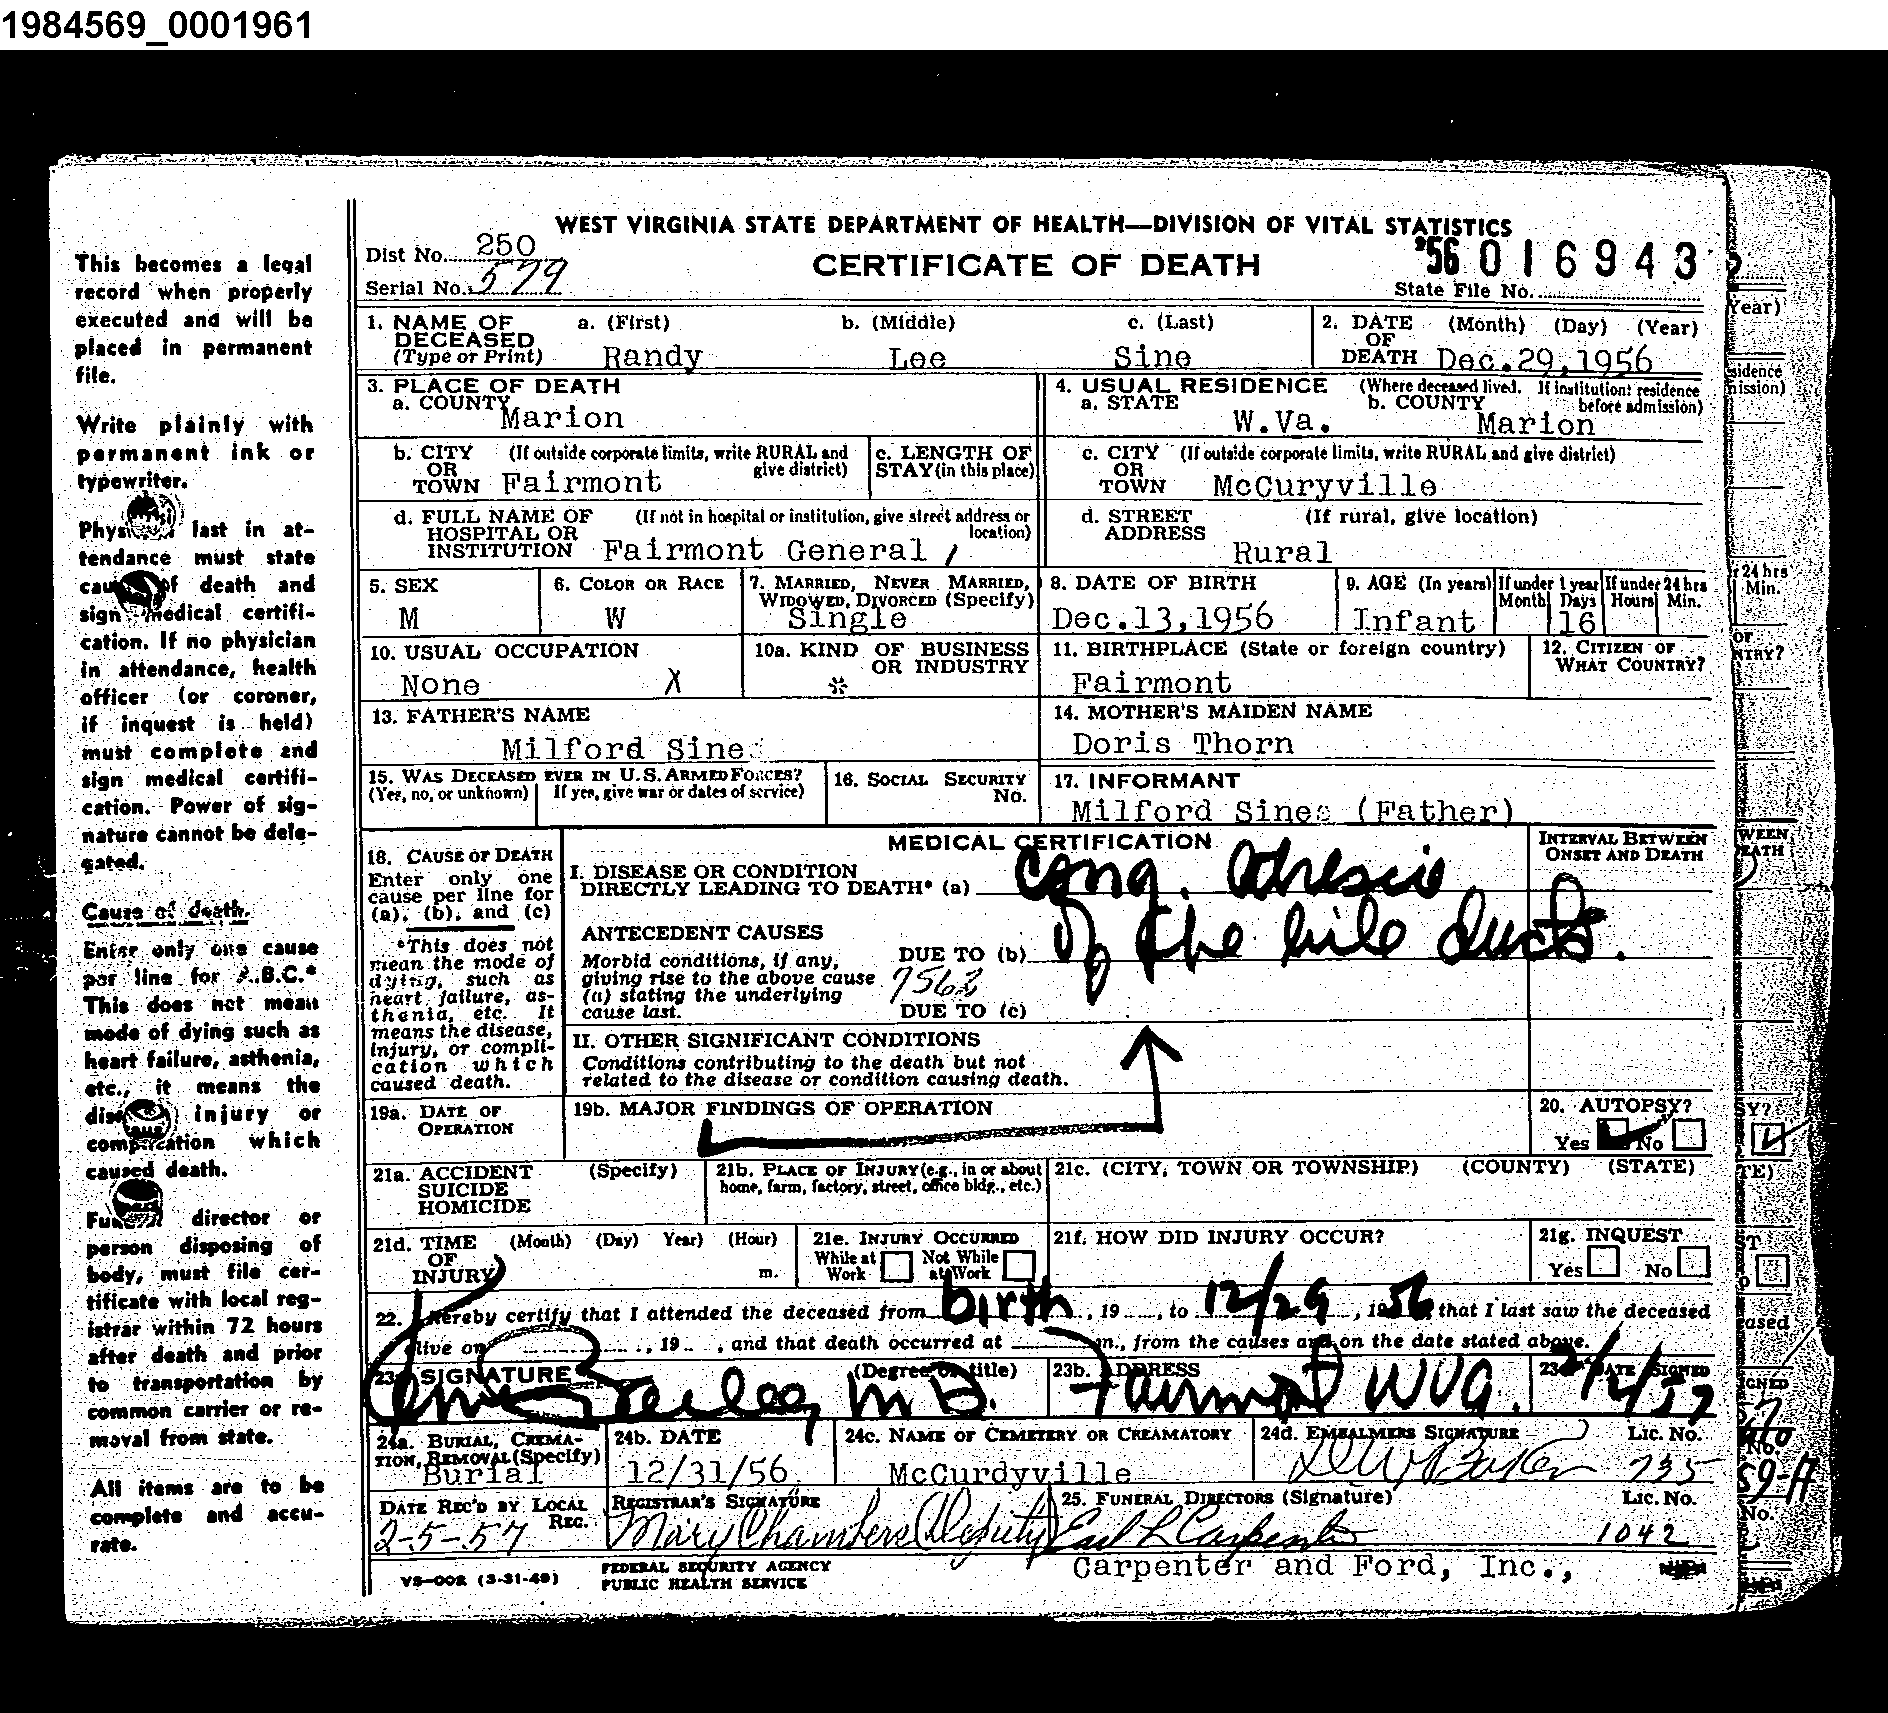 1984569_0001961
WEST VIRGINIA STATE DEPARTMENT OF HEALTH—DIVISION OF VITAL STATISTICS
CERTIFICATE OF DEATH
Dist No. 250
Serial No. 579
'56 016943
State File No.
This becomes a legal
record when properly
executed and will be
placed in permanent
file.
Write plainly with
permanent ink or
typewriter.
last in at-
tendance must state
of death and
sign medical certifi-
cation. If no physician
in attendance, health
officer (or coroner,
if inquest is held)
must complete and
sign medical certifi-
cation. Power of sig-
nature cannot be dele-
gated.
Cause of death.
Enter only one cause
per line for A.B.C.*
This does not mean
mode of dying such as
heart failure, asthenia,
etc., it means the
injury or
which
caused death.
director or
person disposing of
body, must file cer-
tificate with local reg-
istrar within 72 hours
after death and prior
to transportation by
common carrier or re-
moval from state.
All items are to be
complete and accu-
rate.
1. NAME OF DECEASED (Type or Print) a. (First) b. (Middle) c. (Last)
Randy Lee Sine
2. DATE OF DEATH (Month) (Day) (Year)
Dec.29,1956
3. PLACE OF DEATH
a. COUNTY Marion
4. USUAL RESIDENCE (Where deceased lived. If institution: residence before admission)
a. STATE W.Va. b. COUNTY Marion
b. CITY OR TOWN (If outside corporate limits, write RURAL and give district) Fairmont
c. LENGTH OF STAY (in this place)
c. CITY OR TOWN (If outside corporate limits, write RURAL and give district) McCuryville
d. FULL NAME OF HOSPITAL OR INSTITUTION (If not in hospital or institution, give street address or location) Fairmont General
d. STREET ADDRESS (If rural, give location) Rural
5. SEX M
6. COLOR OR RACE W
7. MARRIED, NEVER MARRIED, WIDOWED, DIVORCED (Specify) Single
8. DATE OF BIRTH Dec.13,1956
9. AGE (In years) Infant
If under 1 year Month Days 16
If under 24 hrs Hours Min.
10. USUAL OCCUPATION None X
10a. KIND OF BUSINESS OR INDUSTRY *
11. BIRTHPLACE (State or foreign country) Fairmont
12. CITIZEN OF WHAT COUNTRY?
13. FATHER'S NAME Milford Sine
14. MOTHER'S MAIDEN NAME Doris Thorn
15. WAS DECEASED EVER IN U.S. ARMED FORCES?
(Yes, no, or unknown) If yes, give war or dates of service)
16. SOCIAL SECURITY No.
17. INFORMANT
Milford Sines (Father)
MEDICAL CERTIFICATION
INTERVAL BETWEEN ONSET AND DEATH
18. CAUSE OF DEATH
Enter only one
cause per line for
(a), (b), and (c)
*This does not
mean the mode of
dying, such as
heart failure, as-
thenia, etc. It
means the disease,
injury, or compli-
cation which
caused death.
I. DISEASE OR CONDITION
DIRECTLY LEADING TO DEATH* (a) Cong. atresia
of the bile ducts.
ANTECEDENT CAUSES
Morbid conditions, if any,
giving rise to the above cause
(a) stating the underlying
cause last.
DUE TO (b)
7562
DUE TO (c)
II. OTHER SIGNIFICANT CONDITIONS
Conditions contributing to the death but not
related to the disease or condition causing death.
19a. DATE OF OPERATION
19b. MAJOR FINDINGS OF OPERATION
20. AUTOPSY?
Yes No
21a. ACCIDENT SUICIDE HOMICIDE (Specify)
21b. PLACE OF INJURY (e.g., in or about home, farm, factory, street, office bldg., etc.)
21c. (CITY, TOWN OR TOWNSHIP) (COUNTY) (STATE)
21d. TIME OF INJURY (Month) (Day) Year) (Hour) m.
21e. INJURY OCCURRED
While at Work Not While at Work
21f. HOW DID INJURY OCCUR?
21g. INQUEST
Yes No
22. I hereby certify that I attended the deceased from birth, 19, to 12/29, 1956, that I last saw the deceased
alive on, 19, and that death occurred at m., from the causes and on the date stated above.
SIGNATURE (Degree or title) M D.
23b. ADDRESS Fairmont W Va.
DATE SIGNED
24a. BURIAL, CREMATION, REMOVAL (Specify) Burial
24b. DATE 12/31/56
24c. NAME OF CEMETERY OR CREAMATORY McCurdyville
24d. EMBALMERS SIGNATURE Lic. No. 735
DATE REC'D BY LOCAL REG. 2-5-57
REGISTRAR'S SIGNATURE Mary Chambers (Deputy)
25. FUNERAL DIRECTORS (Signature) Lic. No.
Earl L Carpenter 1042
Carpenter and Ford, Inc.,
VS-002 (3-31-49)
FEDERAL SECURITY AGENCY
PUBLIC HEALTH SERVICE